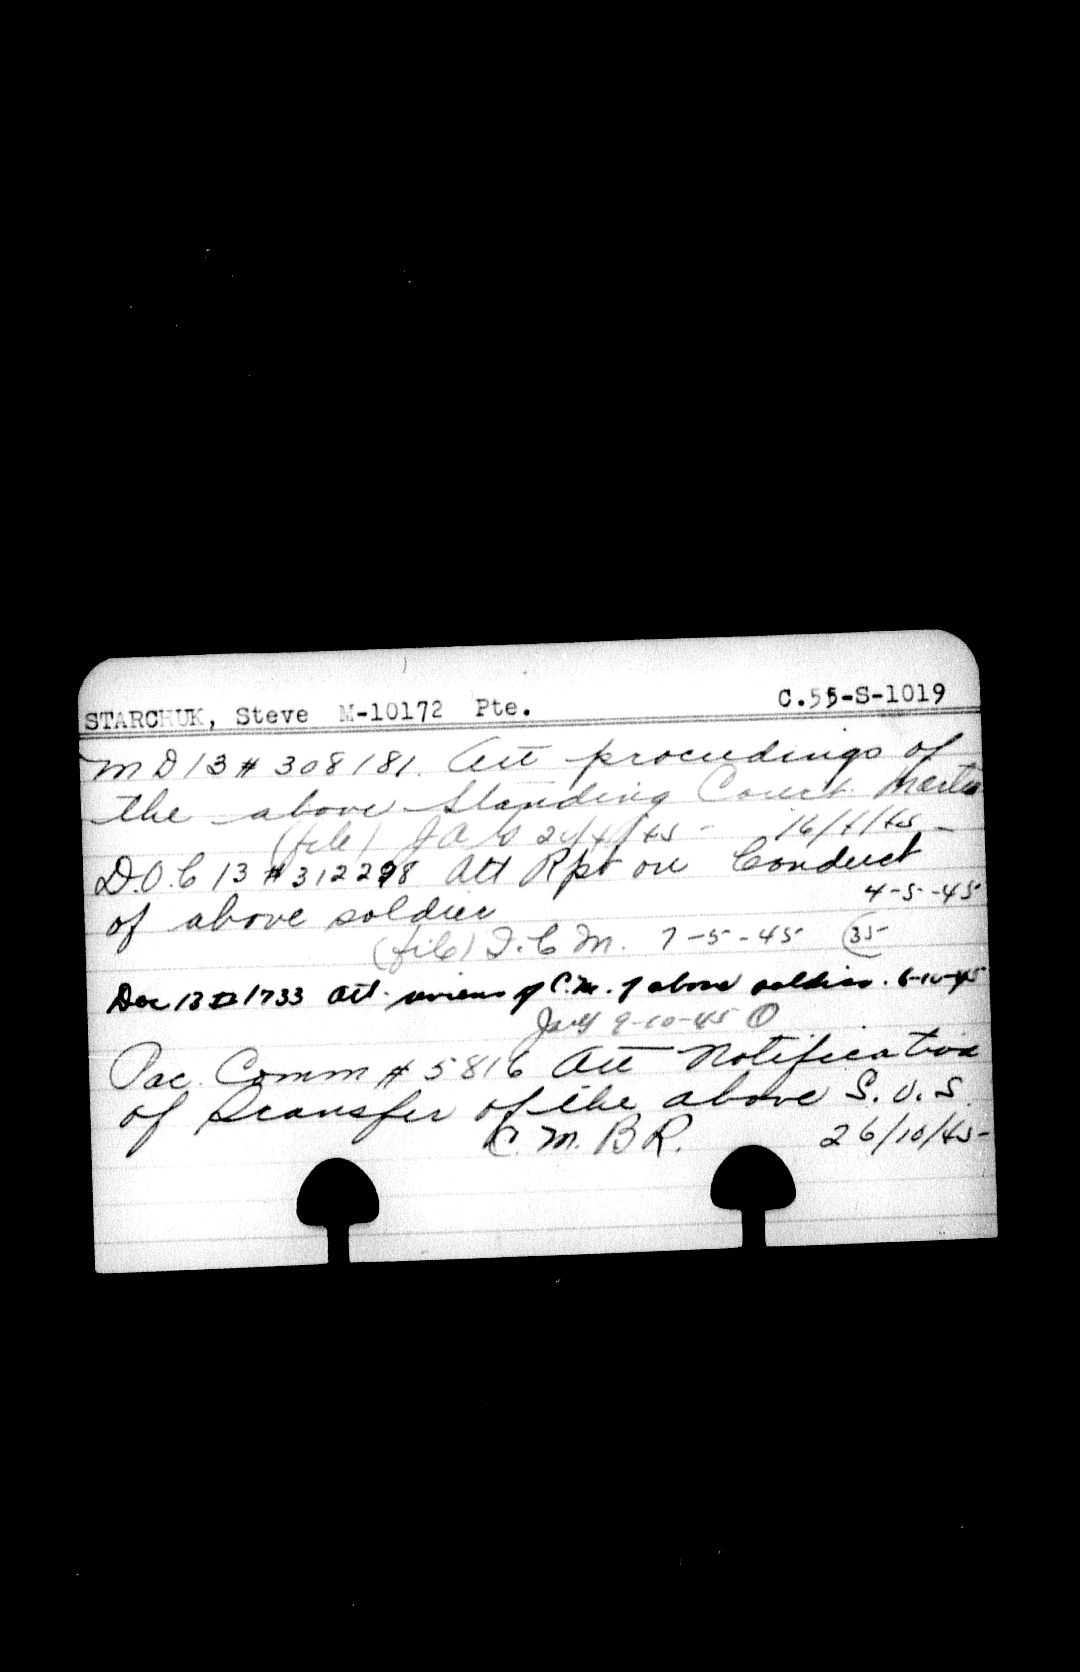 STARCHUK, Steve M-10172 Pte. C.55-S-1019
M D 13 # 308181. Att proceedings of
the above Standing Court Martial
(file) J A G 24/4/45 - 16/4/45
D.O.C 13 # 312298 Att Rpt on Conduct
of above soldier 4-5-45
(file) D.C.M. 7-5-45 (35
Doc 13 1733 Att. review of C.M. of above soldier. 6-10-45
9-10-45
Pac. Comm # 5816 Att Notification
of transfer of the above S.O.S.
C.M.B.R. 26/10/45-